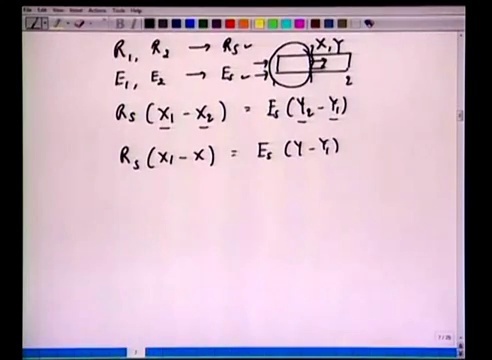 File Edit View Insert Actions Tools Help
R₁, R₂ → Rs ✓
X, Y
E₁, E₂ → Es ✓
2
Rs (X₁ - X₂) = Es (Y₂ - Y₁)
Rs (X₁ - X) = Es (Y - Y₁)